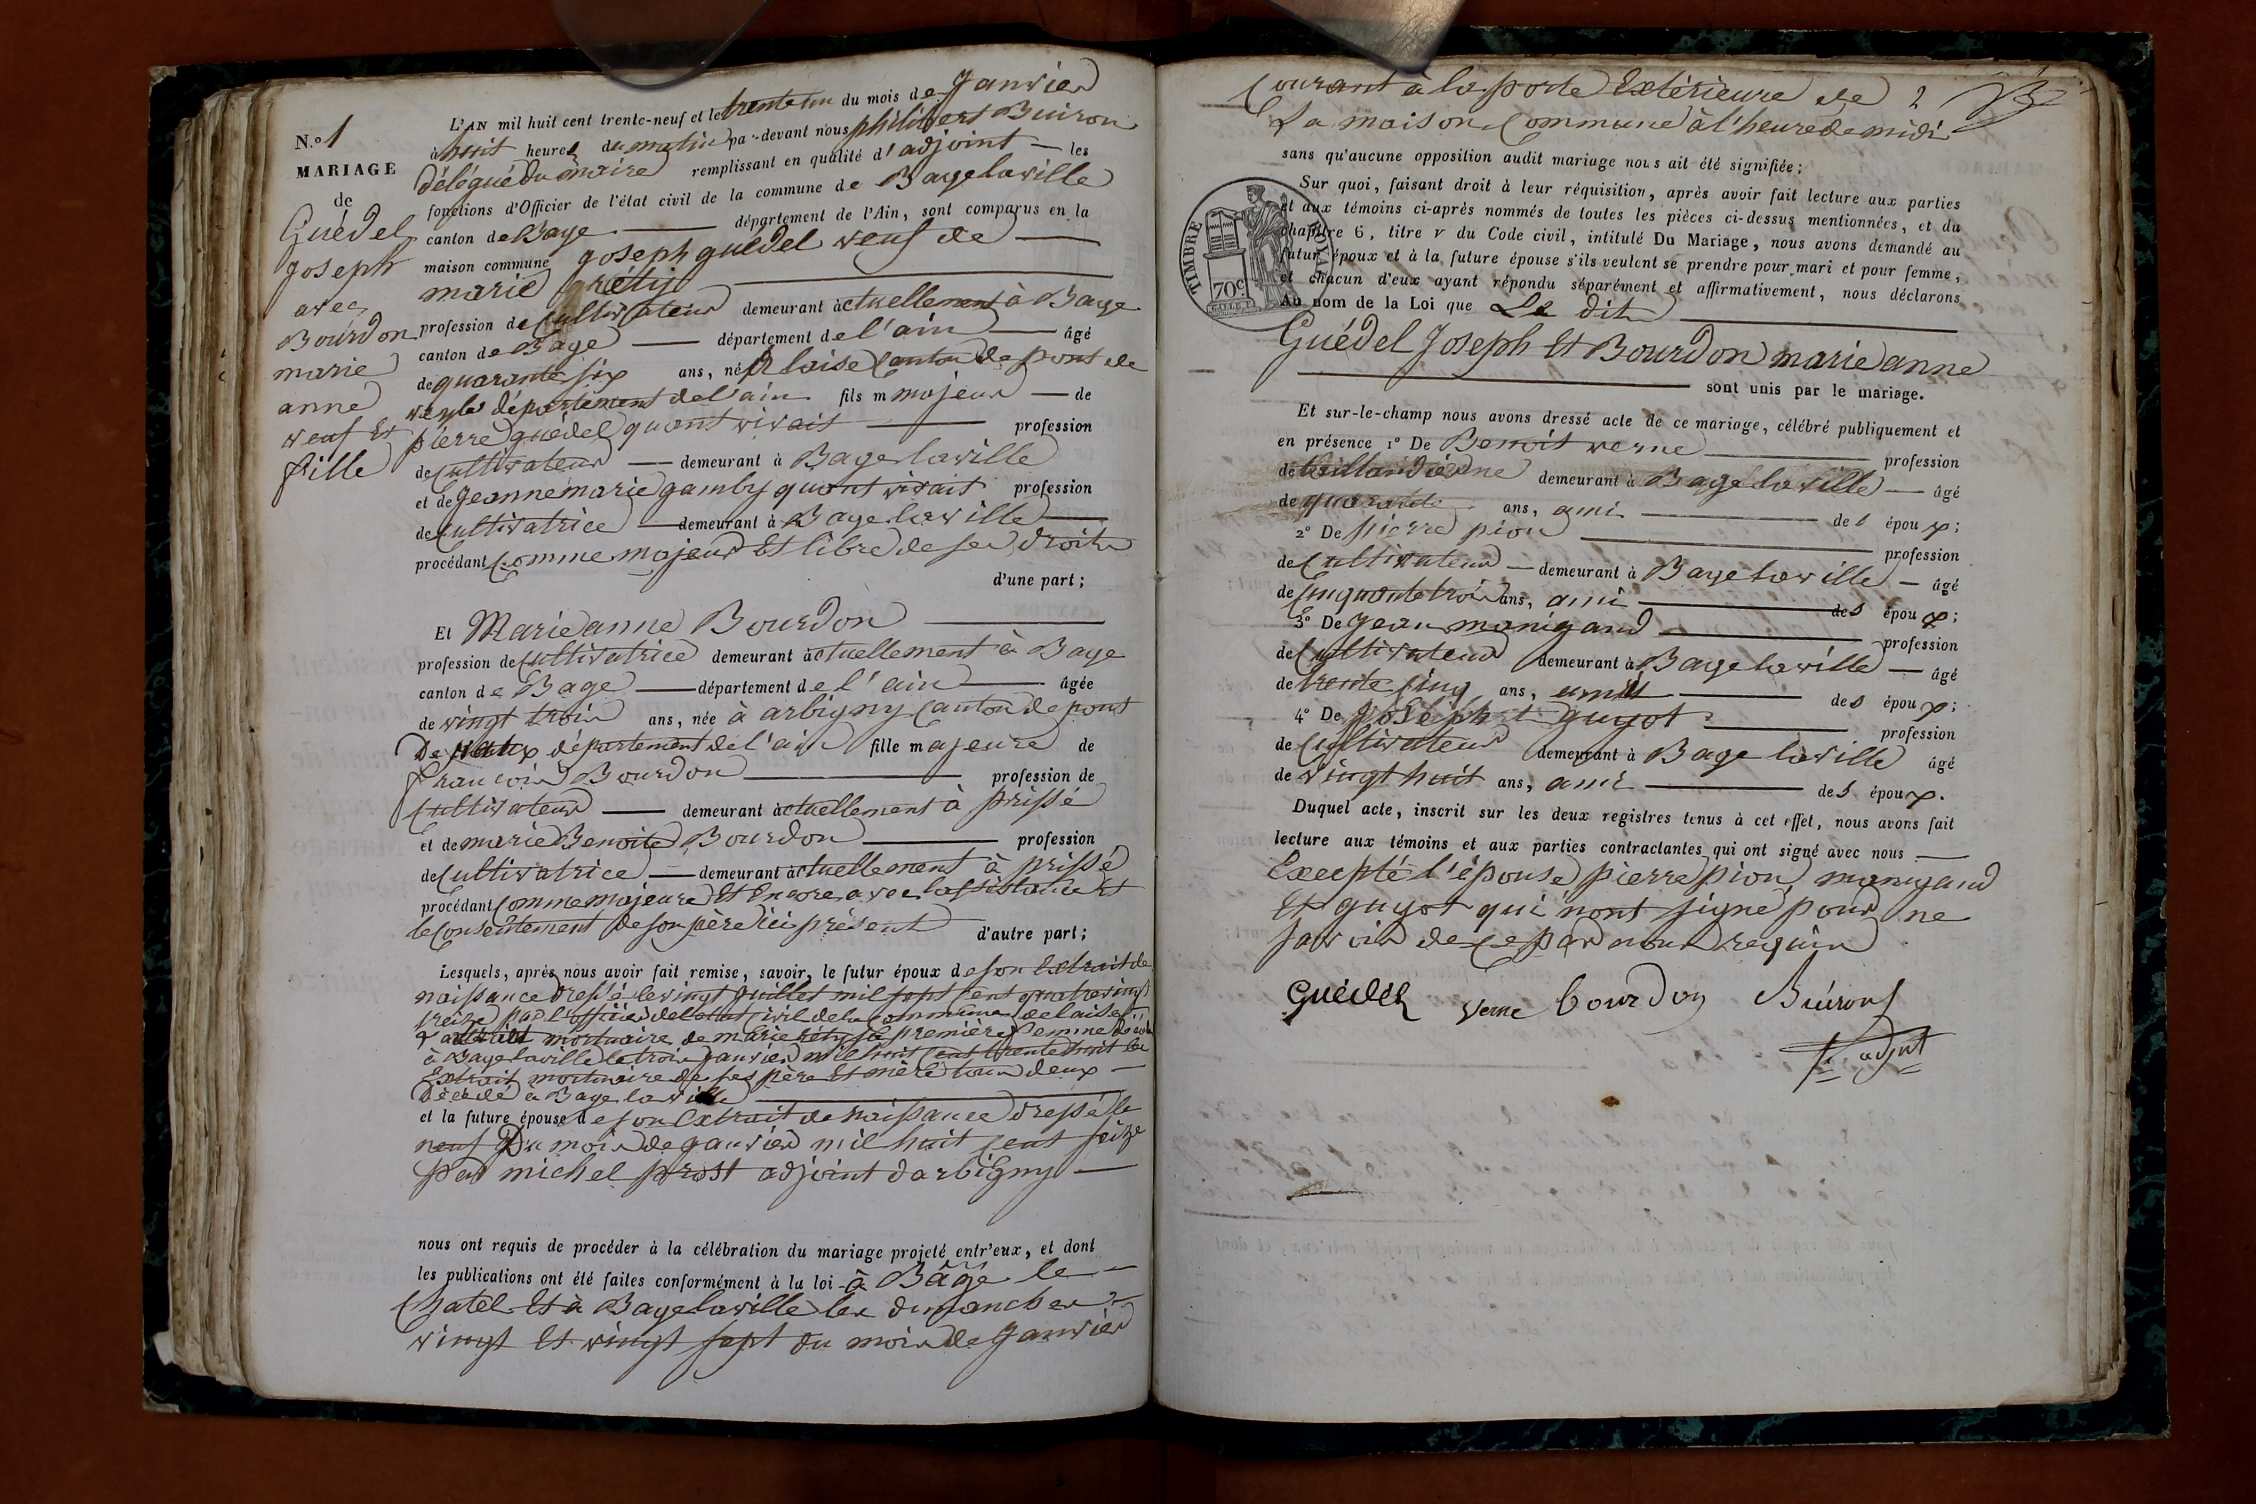 N.º 1
MARIAGE
de
Guédel
joseph
avec
Bourdon
marie
anne
veuf Et
fille
L'AN mil huit cent trente-neuf et le trente un du mois de janvier
à huit heures du matin par-devant nous philibert Buiron
délégué du maire remplissant en qualité d'adjoint les
fonctions d'Officier de l'état civil de la commune de Bagelaville
canton de Bage département de l'Ain, sont comparus en la
maison commune joseph guédel veuf de
marie rétij
profession de Cultivateur demeurant actuellement à Bage
canton de Bage département de l'ain âgé
de quarante six ans, né à laise Canton de pont de
veyle département de l'ain fils majeur de
pierre guédel quant vivait profession
de Cultivateur demeurant à Bagelaville
et de jeanne marie gamby quant vivait profession
de Cultivatrice demeurant à Bagelaville
procédant Comme majeur Et libre de ses droits
d'une part;
Et Marie anne Bourdon
profession de Cultivatrice demeurant actuellement à Bage
canton de Bage département de l'ain âgée
de vingt trois ans, née à arbigny Canton de pont
de vaux département de l'ain fille majeure de
françois Bourdon profession de
Cultivateur demeurant actuellement à prissé
et de marie Benoite Bourdon profession
de Cultivatrice demeurant actuellement à prissé
procédant Comme majeure Et Encore avec lassistance Et
le Consentement de son père ici présent d'autre part;
Lesquels, après nous avoir fait remise, savoir, le futur époux de son Extrait de
naissance dressé le vingt juillet mil sept cent quatre vingt
treize par l'officier de l'état Civil de la Commune de laise
Extrait mortuaire de marie rétij sa première femme décédé
à Bagelaville le trois janvier mil huit Cent trente huit les
Extrait mortuaire de ses père Et mère tous deux
décédé à Bagelaville
et la future épouse de son Extrait de naissance dressé le
neuf Du mois de janvier mil huit Cent seize
par michel prost adjoint d'arbigny
nous ont requis de procéder à la célébration du mariage projeté entr'eux, et dont
les publications ont été faites conformément à la loi à Bâgé le
Chatel Et à Bagelaville les dimanches
vingt Et vingt sept du mois de janvier
Courant à la porte Extérieure de 2
La maison Commune à l'heure de midi
sans qu'aucune opposition audit mariage nous ait été signifiée:
Sur quoi, faisant droit à leur réquisition, après avoir fait lecture aux parties
et aux témoins ci-après nommés de toutes les pièces ci-dessus mentionnées, et du
chapitre 6, titre V du Code civil, intitulé Du Mariage, nous avons demandé au
futur époux et à la future épouse s'ils veulent se prendre pour mari et pour femme,
et chacun d'eux ayant répondu séparément et affirmativement, nous déclarons
Au nom de la Loi que Le dit
TIMBRE ROYAL
70 c.
Guédel Joseph Et Bourdon marie anne
sont unis par le mariage.
Et sur-le-champ nous avons dressé acte de ce mariage, célébré publiquement et
en présence 1º De Benoit verne profession
de demeurant à Bagelaville âgé
de quarante ans, ami des époux;
2º De pierre pion profession
de Cultivateur demeurant à Bagelaville âgé
de Cinquante trois ans, ami des époux;
3º De jean manigand profession
de Cultivateur demeurant à Bagelaville âgé
de trente Cinq ans, ami des époux;
4º De joseph guyot profession
de Cultivateur demeurant à Bagelaville âgé
de vingt huit ans, ami des époux.
Duquel acte, inscrit sur les deux registres tenus à cet effet, nous avons fait
lecture aux témoins et aux parties contractantes qui ont signé avec nous
Excepté l'épouse pierre pion manigand
Et guyot qui n'ont signé pour ne
savoir de ce par nous requis
Guédel verne bourdon Buiron
adjnt